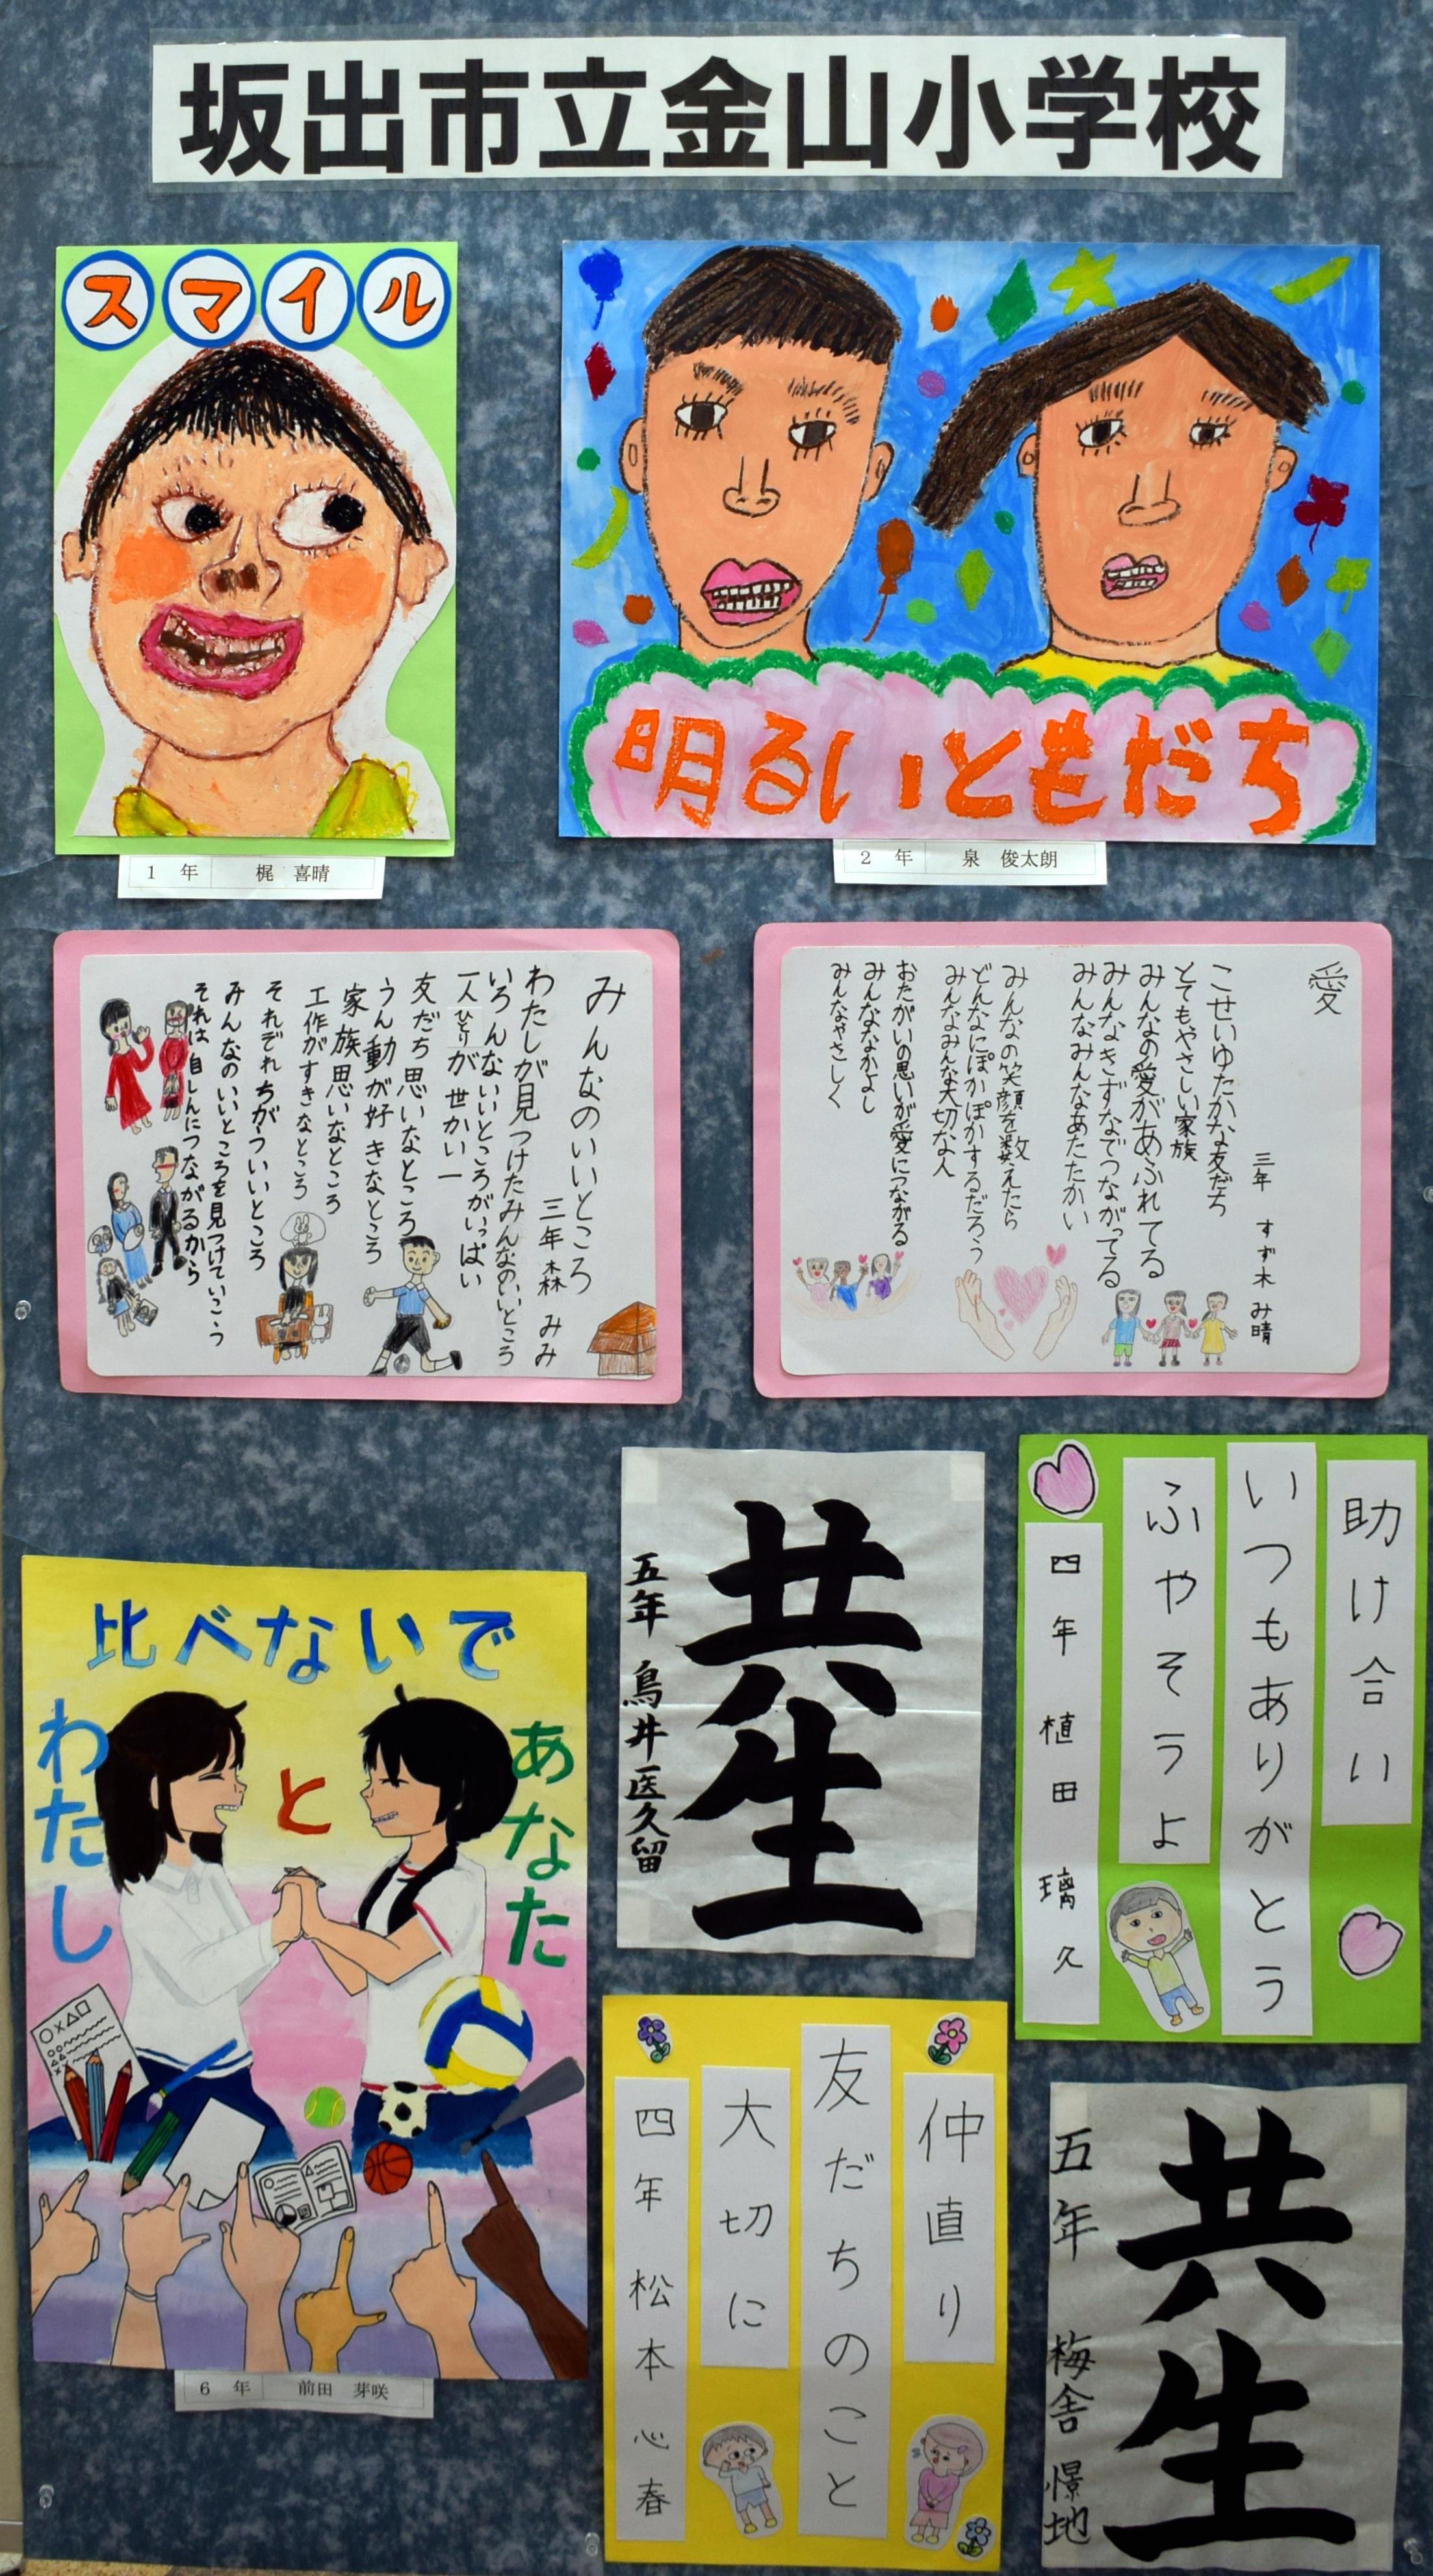 坂出市立金山小学校
スマイル
1 年 梶 喜晴
明るいともだち
2 年 泉 俊太朗
みんなのいいところ
三年 森 みみ
わたしが見つけたみんなのいいところ
いろんないいところがいっぱい
一人ひとりが世かい一
友だち思いなところ
うん動が好きなところ
家族思いなところ
工作がすきなところ
それぞれちがういいところ
みんなのいいところを見つけていこう
それは自しんにつながるから
愛
三年 すず木 み晴
こせいゆたかな友だち
とてもやさしい家族
みんなの愛があふれてる
みんなきずなでつながってる
みんなみんなあたたかい
みんなの笑顔を数えたら
どんなにぽかぽかするだろう
みんなみんな大切な人
おたがいの思いが愛につながる
みんななかよし
みんなやさしく
比べないで
わたし
と
あなた
6 年 前田 芽咲
共生
五年 鳥井 医久留
助け合い
いつもありがとう
ふやそうよ
四年 植田 璃久
仲直り
友だちのこと
大切に
四年 松本 心春
共生
五年 梅舎 憬地